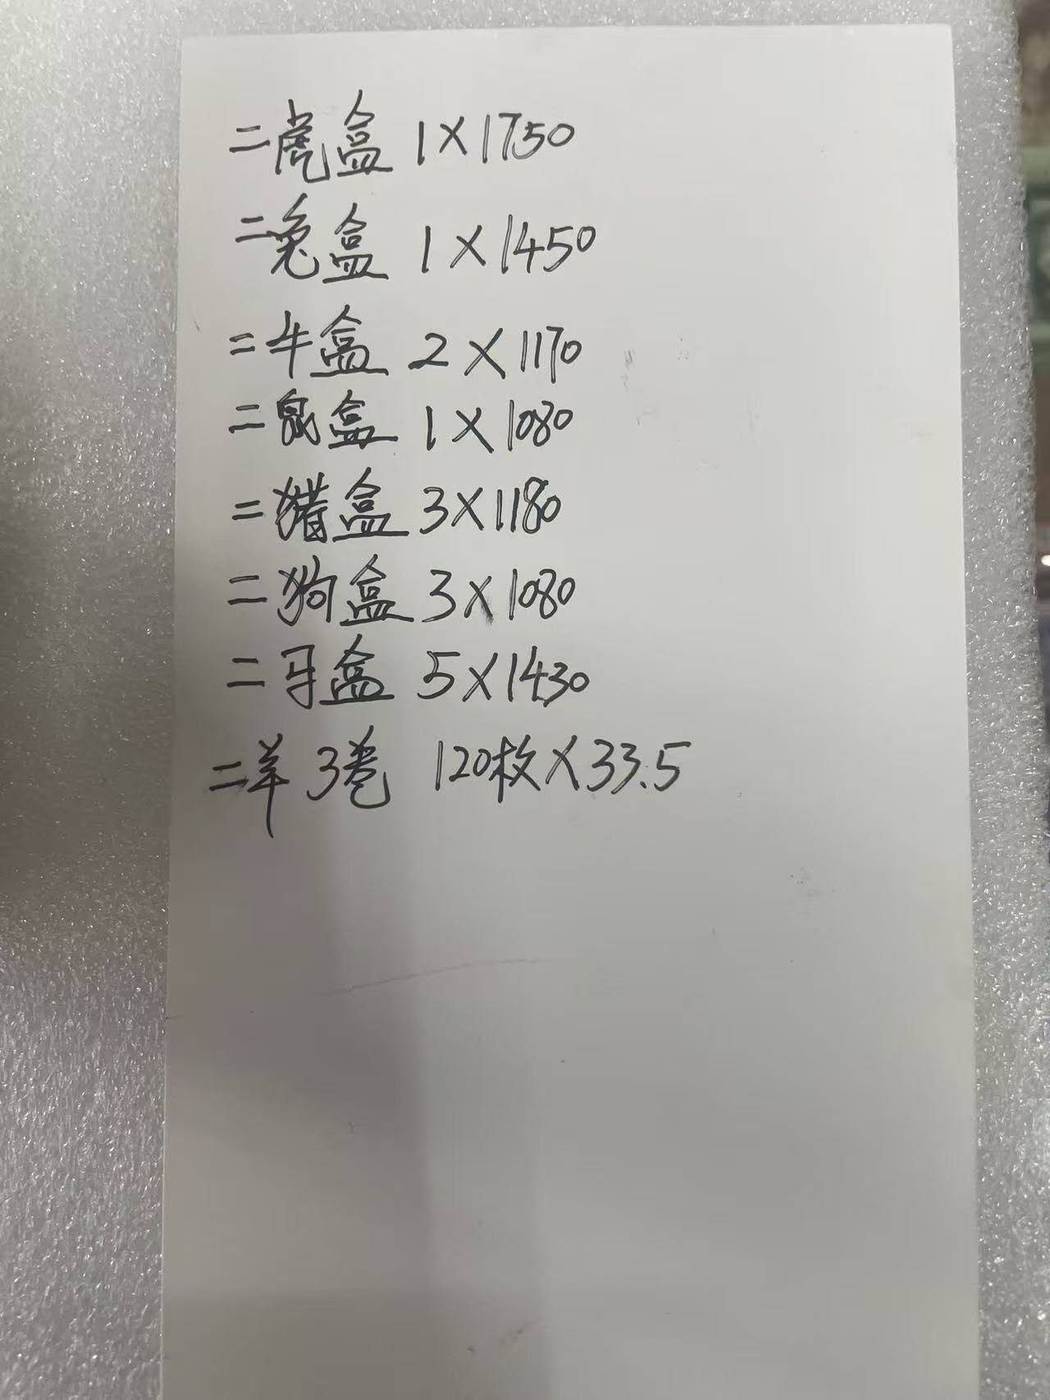 二虎盒 1X1750
二兔盒 1X1450
二牛盒 2X1170
二鼠盒 1X1080
二猪盒 3X1180
二狗盒 3X1080
二牙盒 5X1430
二羊 3卷 120枚X33.5